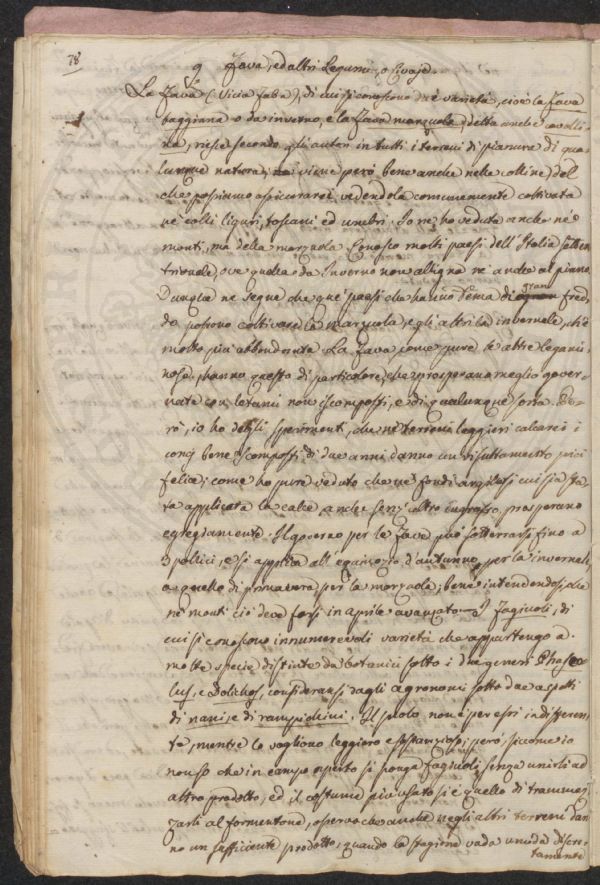 78
9 Fava, ed altri Legumi, o Civaje.
La Fava (Vicia faba), di cui si conoscono due varietà, cioè la Fava
baggiana o da inverno, e la Fava marzuola, detta anche cavalli-
na, riesce secondo gli autori in tutti i terreni di pianura di qua-
lunque natura; viene però bene anche nelle colline, del
che possiamo assicurarci vedendola comunemente coltivata
ne' colli liguri, toscani ed umbri. Io ne ho veduta anche ne'
monti, ma della marzuola. Conosco molti paesi dell'Italia setten-
trionale, ove quella da Inverno non alligna ne anche al piano.
Dunque ne segue che que' paesi che hanno tema di gran fred-
do possono coltivare la marzuola, e gli altri la invernale, ch'è
molto più abbondante. La Fava come pure le altre legumi-
nose, hanno questo di particolare, che prosperano meglio gover-
nate con letami non iscomposti, e di qualunque sorta. Pe-
rò, io ho degli sperimenti, che ne' terreni leggieri calcarei i
conci bene scomposti di due anni danno un risultamento più
felice; come ho pure veduto che ne' fondi argillosi cui sia sta-
ta applicata la calce, anche senz'altro ingrasso, prosperano
egregiamente. Il governo per le Fave può sotterrarsi fino a
3 pollici, e si applica all'equinozio d'autunno per la invernale,
a quello di primavera per la marzuola; bene intendendosi, che
ne' monti ciò deve farsi in aprile avanzato. I Fagiuoli, di
cui si conoscono innumerevoli varietà che appartengono a
molte specie distinte da botanici sotto i due generi Phaseo-
lus, e Dolichos, consideransi dagli agronomi sotto due aspetti
di nani, e di rampichini. Il suolo non è per essi indifferen-
te, mentre lo vogliono leggiero e sostanzioso; però, siccome io
non so che in campo aperto si ponga fagiuoli senza unirli ad
altro prodotto, ed il costume più usato si è quello di tramez-
zarli al formentone, osservo che anche negli altri terreni dan-
no un sufficiente prodotto, quando la stagione vada umida discre-
tamente